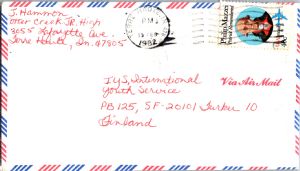 J. Hammon
Otter Creek JR. High
3055 Lafayette Ave.
Terre Haute, In. 47805
PM
1982
Philip Mazzei
Via Air Mail
IYS, International
Youth Service
PB125, SF-20101 Turku 10
Finland